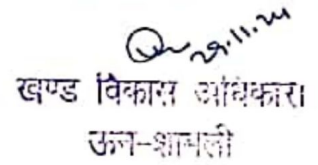 29.11.24
खण्ड विकास अधिकारी
ऊन-शामली